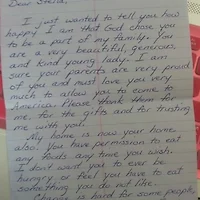 Dear Stela,
I just wanted to tell you how
happy I am that God chose you
to be a part of my family. You
are a very beautiful, generous,
and kind young lady. I am
sure your parents are very proud
of you and must love you very
much to allow you to come to
America. Please thank them for
me for the gifts and for trusting
me with you.
My home is now your home
also. You have permission to eat
any foods any time you wish.
I don't want you to ever be
hungry, or feel you have to eat
something you do not like.
Change is hard for some people,